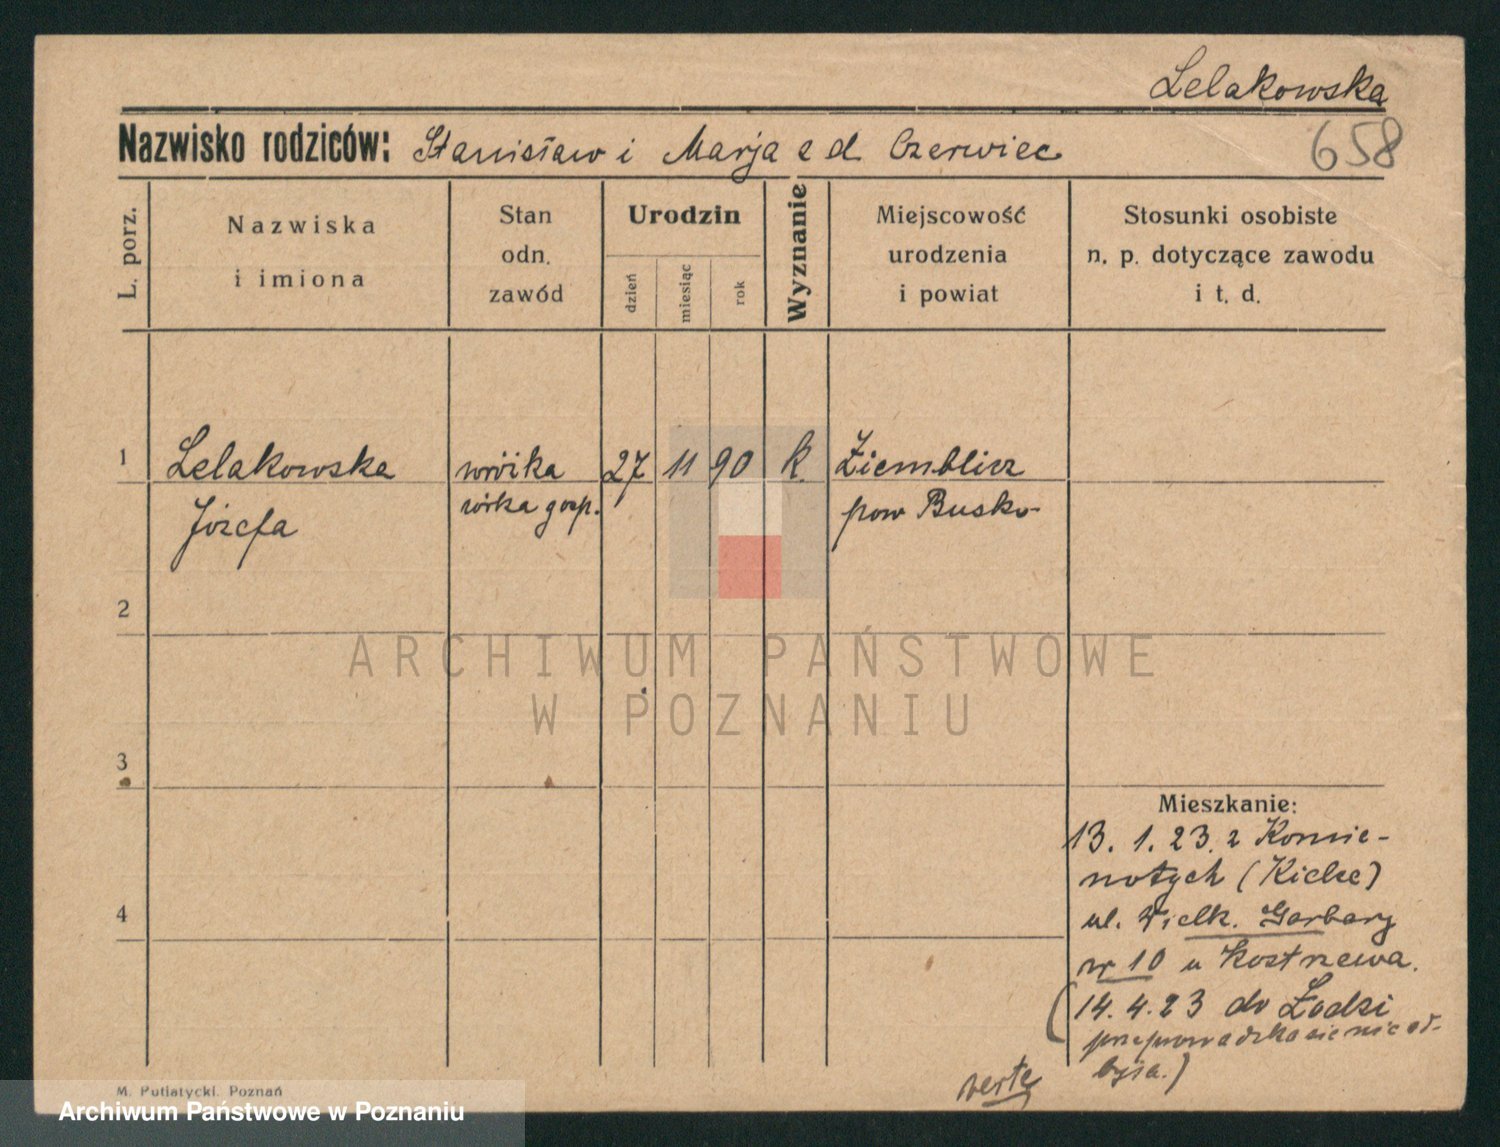 Lelakowska
Nazwisko rodziców: Stanisław i Marja z d. Czerwiec
658
L. porz.
Nazwiska
i imiona
Stan
odn.
zawód
Urodzin
dzień
miesiąc
rok
Wyznanie
Miejscowość
urodzenia
i powiat
Stosunki osobiste
n. p. dotyczące zawodu
i t. d.
1
Lelakowska
Józefa
córka gosp.
27
11
90
k.
pow Busko
2
ARCHIWUM PAŃSTWOWE
W POZNANIU
3
4
Mieszkanie:
13. 1. 23. z Konie-
(Kielce)
ul. Wielk. Garbary
nr 10 u
(14. 4. 23 do Łodzi
przeprowadzka się nie od-
była.)
verte
M. Putiatycki. Poznań
Archiwum Państwowe w Poznaniu